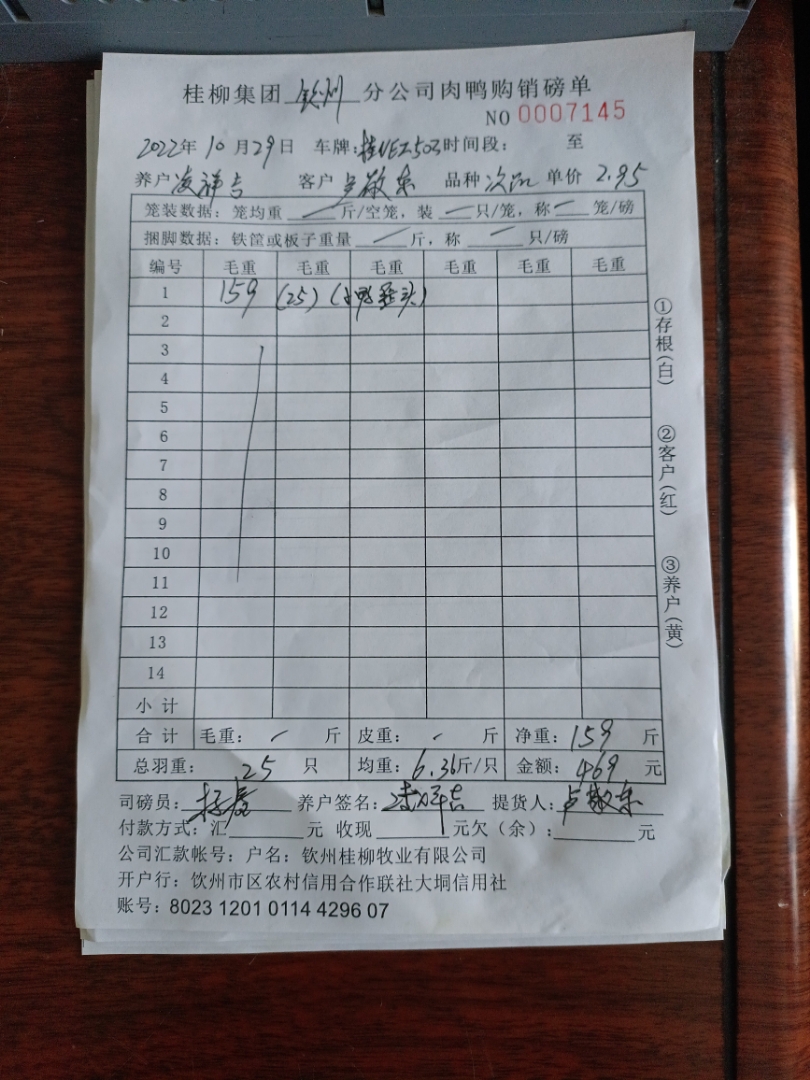 桂柳集团 钦州 分公司肉鸭购销磅单
NO 0007145
2022年 10月29日 车牌:桂NEZ503 时间段: 至
养户 凌祥吉 客户 卢敬东 品种 次品 单价 2.95
笼装数据:笼均重 / 斤/空笼,装 / 只/笼,称 / 笼/磅
捆脚数据:铁筐或板子重量 / 斤,称 / 只/磅
编号 毛重 毛重 毛重 毛重 毛重 毛重
1 159 (25) (鸭 头)
2
3
4
5
6
7
8
9
10
11
12
13
14
小计
合计 毛重: / 斤 皮重: / 斤 净重:159 斤
总羽重: 25 只 均重:6.36斤/只 金额:469 元
司磅员: 养户签名:凌祥吉 提货人:卢敬东
付款方式:汇 元 收现 元欠(余): 元
公司汇款帐号:户名:钦州桂柳牧业有限公司
开户行:饮州市区农村信用合作联社大垌信用社
账号:8023 1201 0114 4296 07
①存根(白)
②客户(红)
③养户(黄)